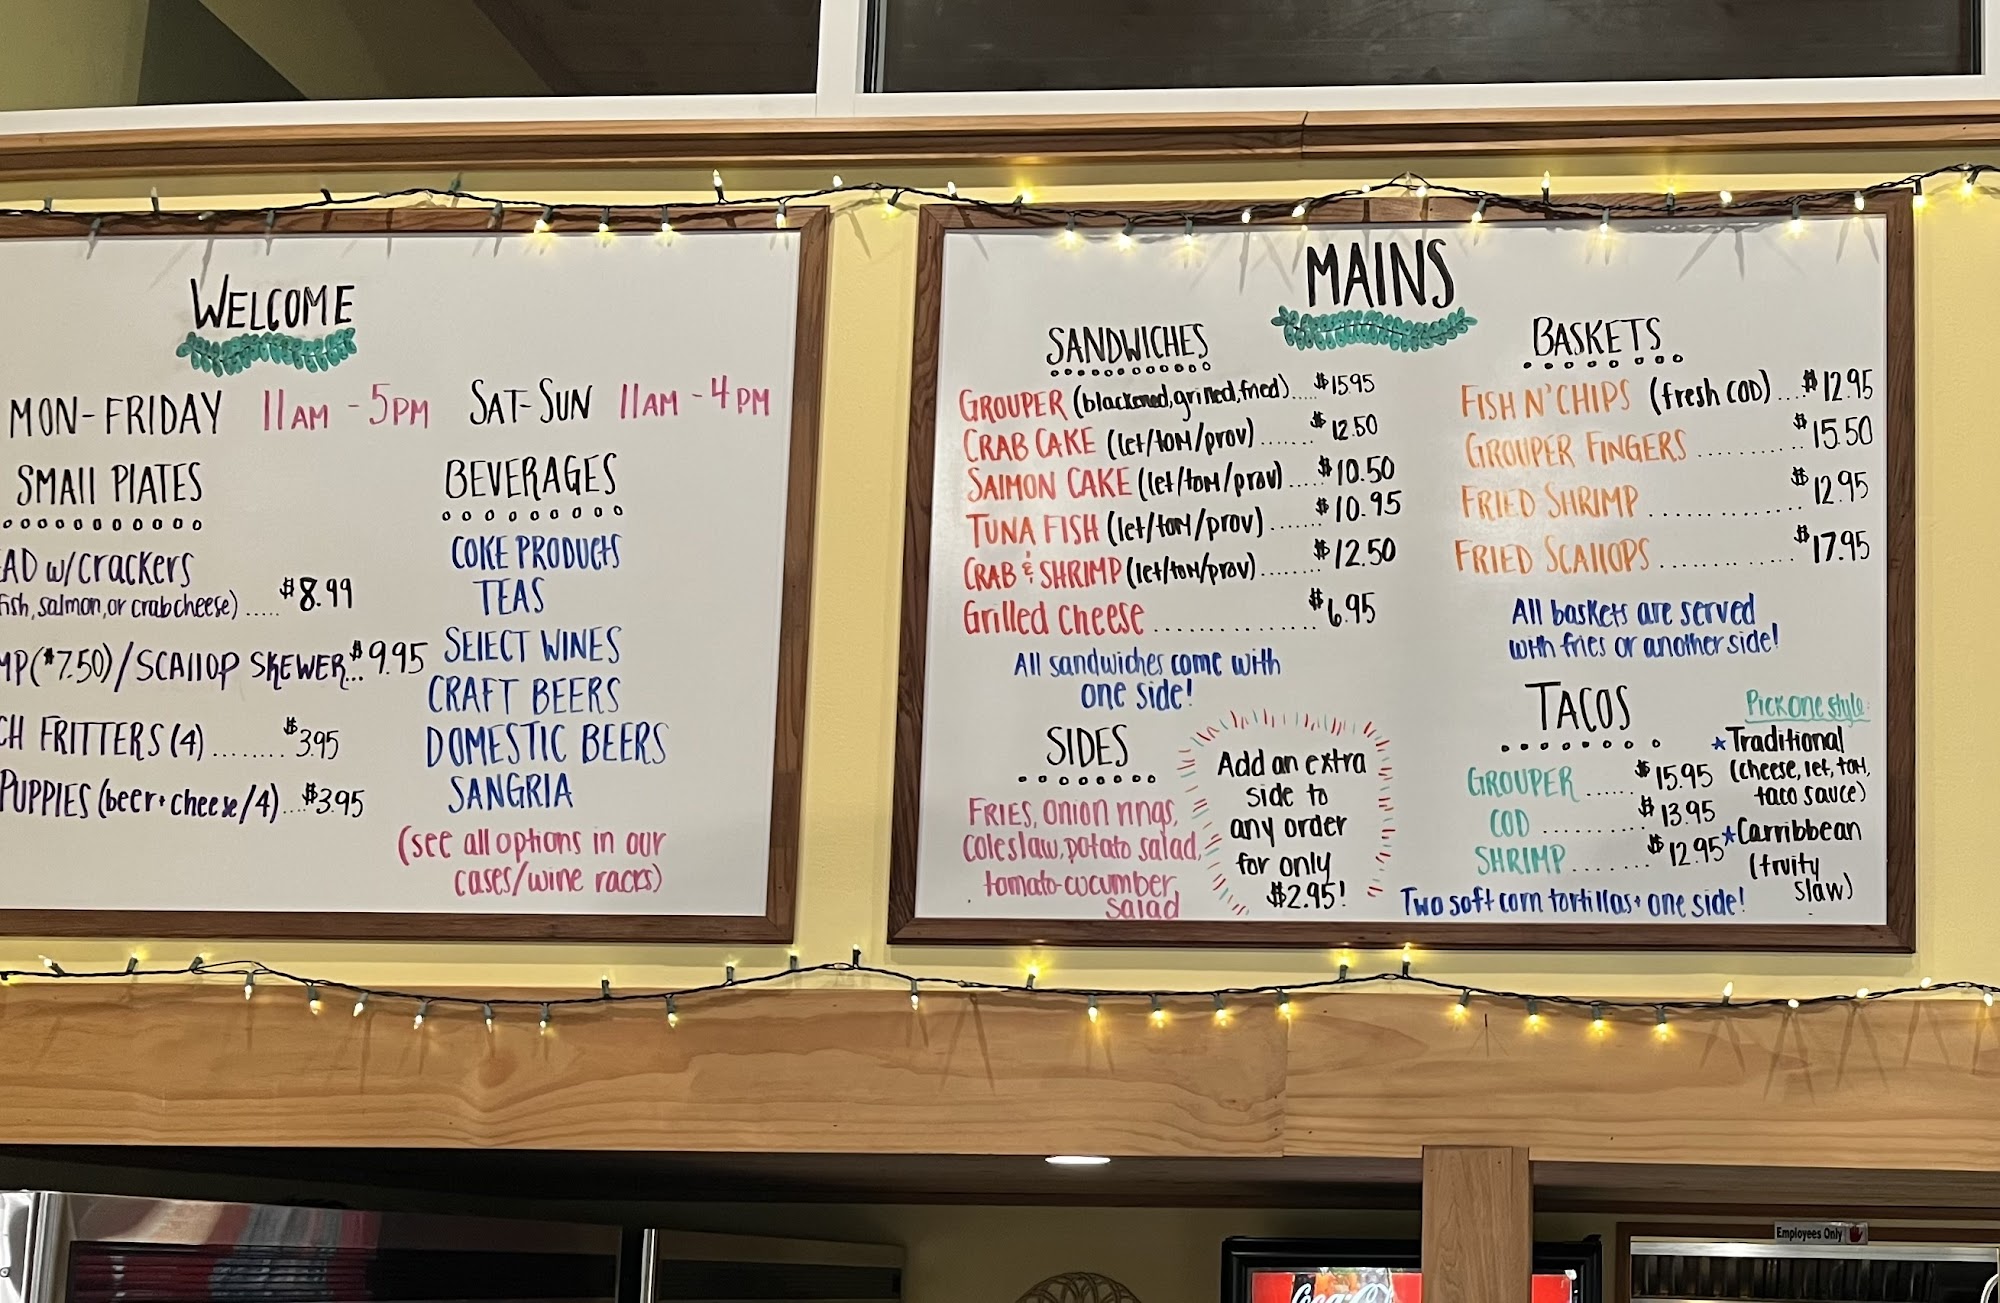 WELCOME
MON-FRIDAY 11AM - 5PM SAT-SUN 11AM - 4PM
SMALL PLATES
AD w/crackers
fish, salmon, or crab cheese) ..... $8.99
MP($7.50)/SCALLOP SKEWER... $9.95
CH FRITTERS (4) ........ $3.95
PUPPIES (beer+cheese/4)... $3.95
BEVERAGES
COKE PRODUCTS
TEAS
SELECT WINES
CRAFT BEERS
DOMESTIC BEERS
SANGRIA
(see all options in our
cases/wine racks)
MAINS
SANDWICHES
GROUPER (blackened, grilled, fried).... $15.95
CRAB CAKE (let/tom/prov) ....... $12.50
SALMON CAKE (let/tom/prov) .... $10.50
TUNA FISH (let/tom/prov) ....... $10.95
CRAB & SHRIMP (let/tom/prov) ........ $12.50
Grilled Cheese ................ $6.95
All sandwiches come with
one side!
SIDES
FRIES, onion rings,
coleslaw, potato salad,
tomato-cucumber
salad
Add an extra
side to
any order
for only
$2.95!
BASKETS
FISH N' CHIPS (fresh COD) .... $12.95
GROUPER FINGERS .......... $15.50
FRIED SHRIMP ............. $12.95
FRIED SCALLOPS ............ $17.95
All baskets are served
with fries or another side!
TACOS
GROUPER ...... $15.95
COD .......... $13.95
SHRIMP ....... $12.95
Pick one style:
★ Traditional
(cheese, let, tom,
taco sauce)
★ Carribbean
(fruity
slaw)
Two soft corn tortillas + one side!
Employees Only
Coca-Cola